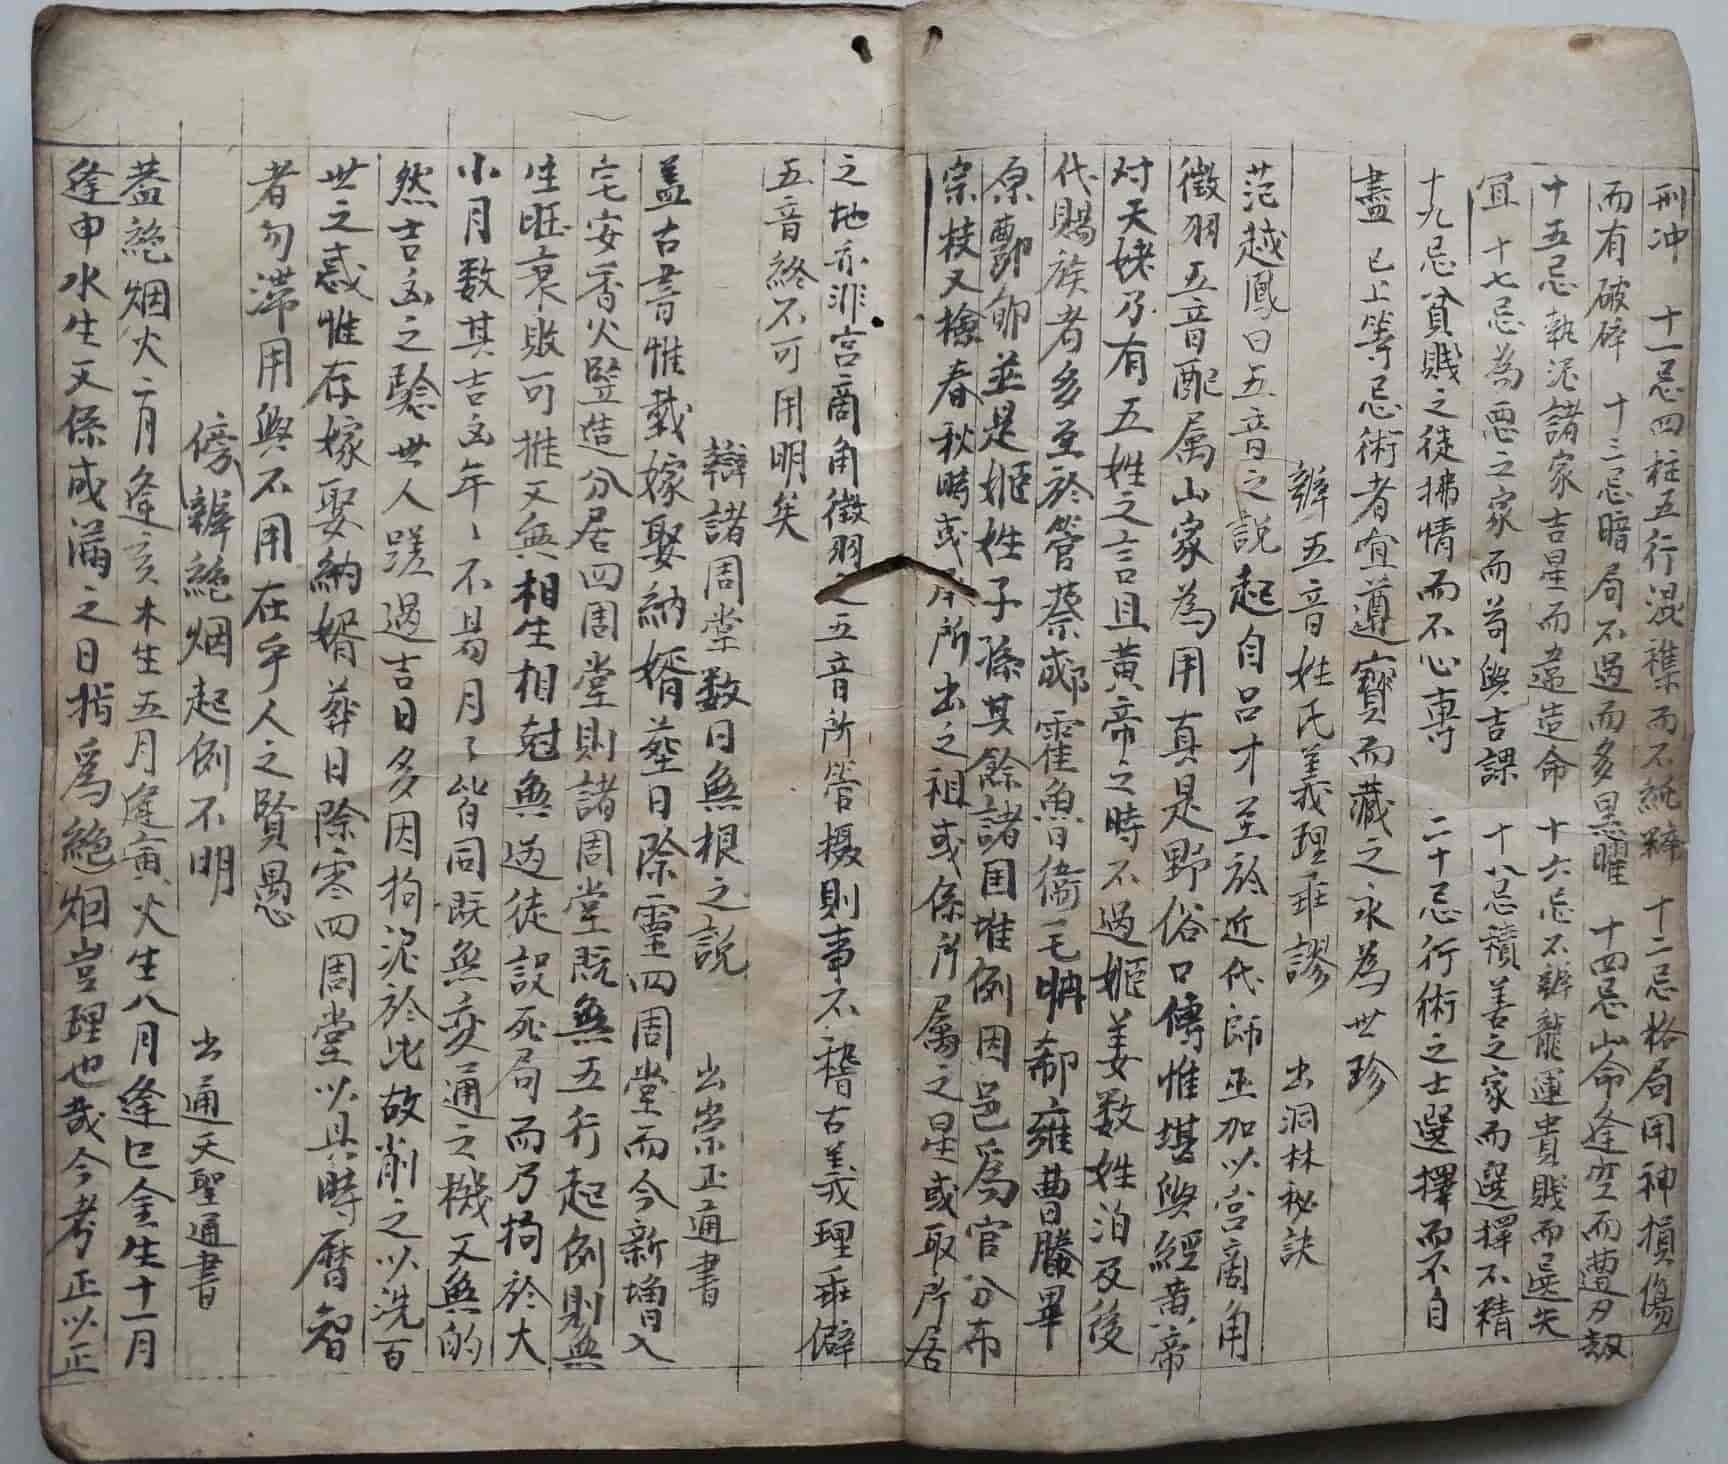 刑冲 十一忌四柱五行混襍而不純粹 十二忌格局用神損傷
而有破碎 十三忌暗局不遇而多黑曜 十四忌山命逢空而遭刃刼
十五忌執泥諸家吉星而違造命 十六忌不辦龍運貴賤而選失
宜 十七忌為惡之家而苟與吉課 十八忌積善之家而選擇不精
十九忌貧賤之徒拂情而不心專 二十忌行術之士選擇而不自
盡 已上等忌術者宜遵寶而藏之永為世珍
辦五音姓氏義理乖謬 出洞林秘訣
范越鳳曰五音之說起自呂才至於近代師巫加以宮商角
徵羽五音配属山家為用真是野俗口傳惟堪與經黄帝
对天姥乃有五姓之言且黄帝之時不過姬姜数姓洎及後
代賜族者多至於管蔡郕霍魯衞毛聃郗雍曹滕畢
原酆郇並是姬姓子孫其餘諸国堆例因邑爲官分布
宗枝又撿春秋時或所出之祖或係所属之星或取所居
之地亦非宮商角徵羽之五音所管摄則事不稽古義理乖僻
五音終不可用明矣
辯諸周堂数日無根之說 出崇正通書
盖古書惟載嫁娶納婿塟日除靈四周堂而今新增入
宅安香火竪造分居四周堂則諸周堂既無五行起例則無
生旺衰敗可推又無相生相尅無过徒設死局而乃拘於大
小月数其吉凶年〻不易月〻皆同既無变通之機又無的
然吉凶之驗世人蹉過吉日多因拘泥於此故削之以洗百
世之惑惟存嫁娶納婿葬日除灵四周堂以具時曆智
者勿滯用與不用在乎人之賢愚
傍辦絶烟起例不明 出通天聖通書
葢絶烟火二月逢亥木生五月逢寅火生八月逢巳金生十一月
逢申水生又係成滿之日指爲絶烟豈理也哉今考正以正